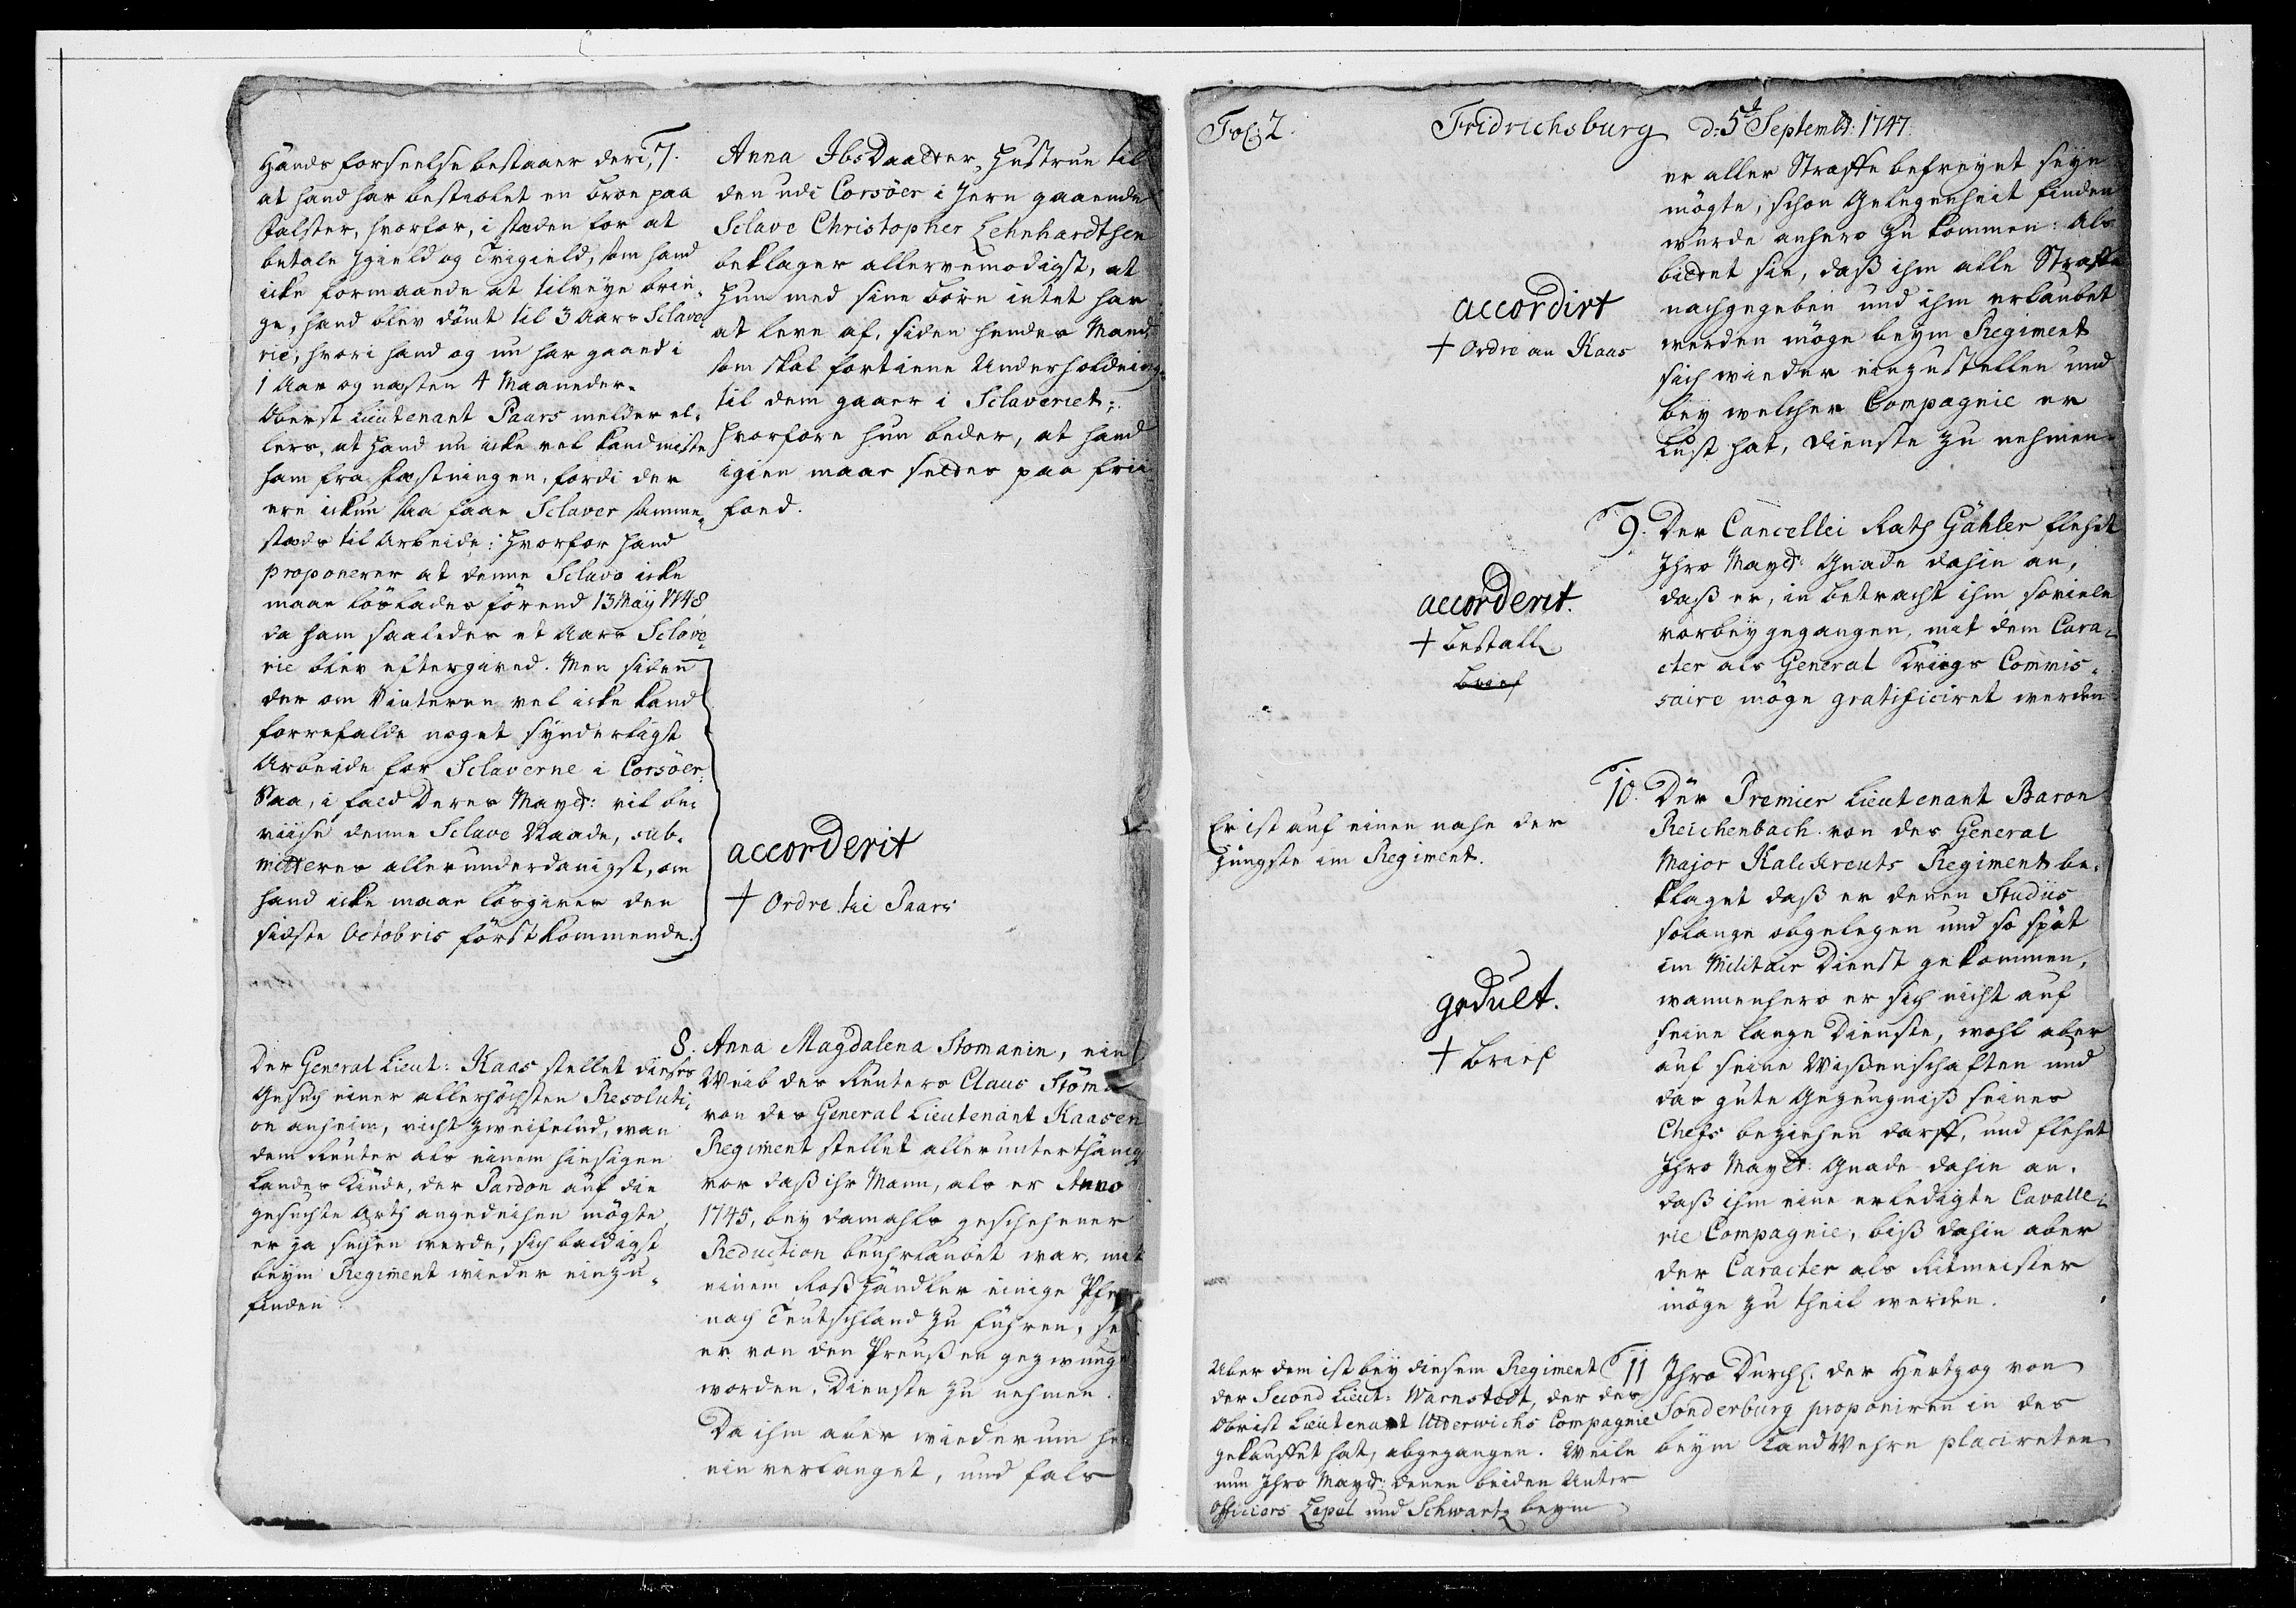 Hands forseelse bestaaer deri,
at hand har bestaalet en broe paa
Falster, hvorfor, i stæden for at
betale Igield og Tvigield, som hand
icke formaaede at tilveye brin-
ge, hand blev dömt til 3 Aars Sclave-
rie, hvori hand og nu har gaaed i
1 Aar og næsten 4 Maaneder.
Oberst Lieutenant Paars melder el-
lers, at hand nu icke vel kand miste
ham fra Fæstningen, fordi der
ere ickun saa faae Sclaver samme-
stæds til Arbeide: hvorfor hand
proponerer at denne Sclave icke
maae löslades förend 13 Maij 1748
da ham saaledes et Aars Sclave-
rie blev eftergived. Men siden
der om Vinteren vel icke kand
forrefalde noget synderligt
Arbeide for Sclaverne i Corsöer,
Saa, i fald Deres Mayt: vil be-
viise denne Sclave Naade, sub-
mitteres allerunderdanigst, om
hand icke maae lösgives den
sidste Octobris först kommende.
7.
Anna Ibs Daatter, Hustrue til
den udi Corsöer i Jern gaaende
Sclave Christopher Lehnhardtsen
beklager allervemodigst, at
hun med sine börn intet har
at leve af, siden hendes Mand
som skal fortiene Underholdning
til dem gaaer i Sclaveriet;
hvorfore hun beder, at hand
igien maae settes paa frie
foed.
accorderit
+ Ordre til Paars
Der General Lieut: Kaas stellet dieses
Gesuch einer allerhöchsten Resoluti-
on anheim, nicht zweifelnd, wan
dem Reuter als einem hiesigen
Landes Kinde, der Pardon auf die
gesuchte Arth angedeihen mögte,
er ja suchen werde, sich baldigst
beym Regiment wieder einzu-
finden.
8.
Anna Magdalena Stomanin, ein
Weib des Reuters Claus Stöma
von des General Lieutenant Kaasen
Regiment stellet allerunterthänig
vor daß ihr Mann, als er Anno
1745, bey damahls geschehener
Reduction beuhrlaubet war, mit
einem Roßhändler einige Pfer
nach Teutschland zu führen, se
er von den Preußen gezwunge
worden, Dienste zu nehmen.
Da ihm aber wiederum her
ein verlanget, und fals
Fol: 2.
Fridrichsburg d: 5t Septembr: 1747.
er aller Straffe befreyet seyn
mögte, schon Gelegenheit finden
würde anhero zu kommen: Als
bittet sie, daß ihm alle Straffe
nachgegeben und ihm erlaubet
werden möge beym Regiment
sich wieder einzustellen und
bey welcher Compagnie er
Lust hat, Dienste zu nehmen.
accordirt
+ Ordre an Kaas
9.
Der Cancellei Rath Gähler flehet
Ihro Mayt: Gnade dahin an,
daß er, in betracht ihm soviele
vorbey gegangen, mit dem Cara-
cter als General Kriegs Commis-
saire möge gratificiret werden.
accorderit.
+ Bestall
Brief
10.
Der Premier Lieutenant Baron
Reichenbach von des General
Major Kalckreuts Regiment be-
klaget daß er denen Studiis
solange obgelegen und so spät
im Militair Dienst gekommen,
wannenhero er sich nicht auf
seine lange Dienste, wohl aber
auf seine Wißenschaften und
das gute Gezeugniß seines
Chefs beziehen darff, und flehet
Ihro Mayt: Gnade dahin an,
daß ihm eine erledigte Cavalle-
rie Compagnie, biß dahin aber
der Caracter als Ritmeister
möge zu theil werden.
Er ist auf einen nahe der
Jüngste im Regiment.
gedult.
+ Brief
11
Ihro Durchl. der Hertzog von
Sonderburg proponiren in des
beym Land Wehre placireten
Uber dem ist bey diesem Regiment
der Second Lieut: Warnstedt, der des
Obrist Lieutenant Utterwichs Compagnie
gekauffet hat, abgegangen. Weile
nun Ihro Mayt: denen beiden Unter
Officiers Lepel und Schwartz beym